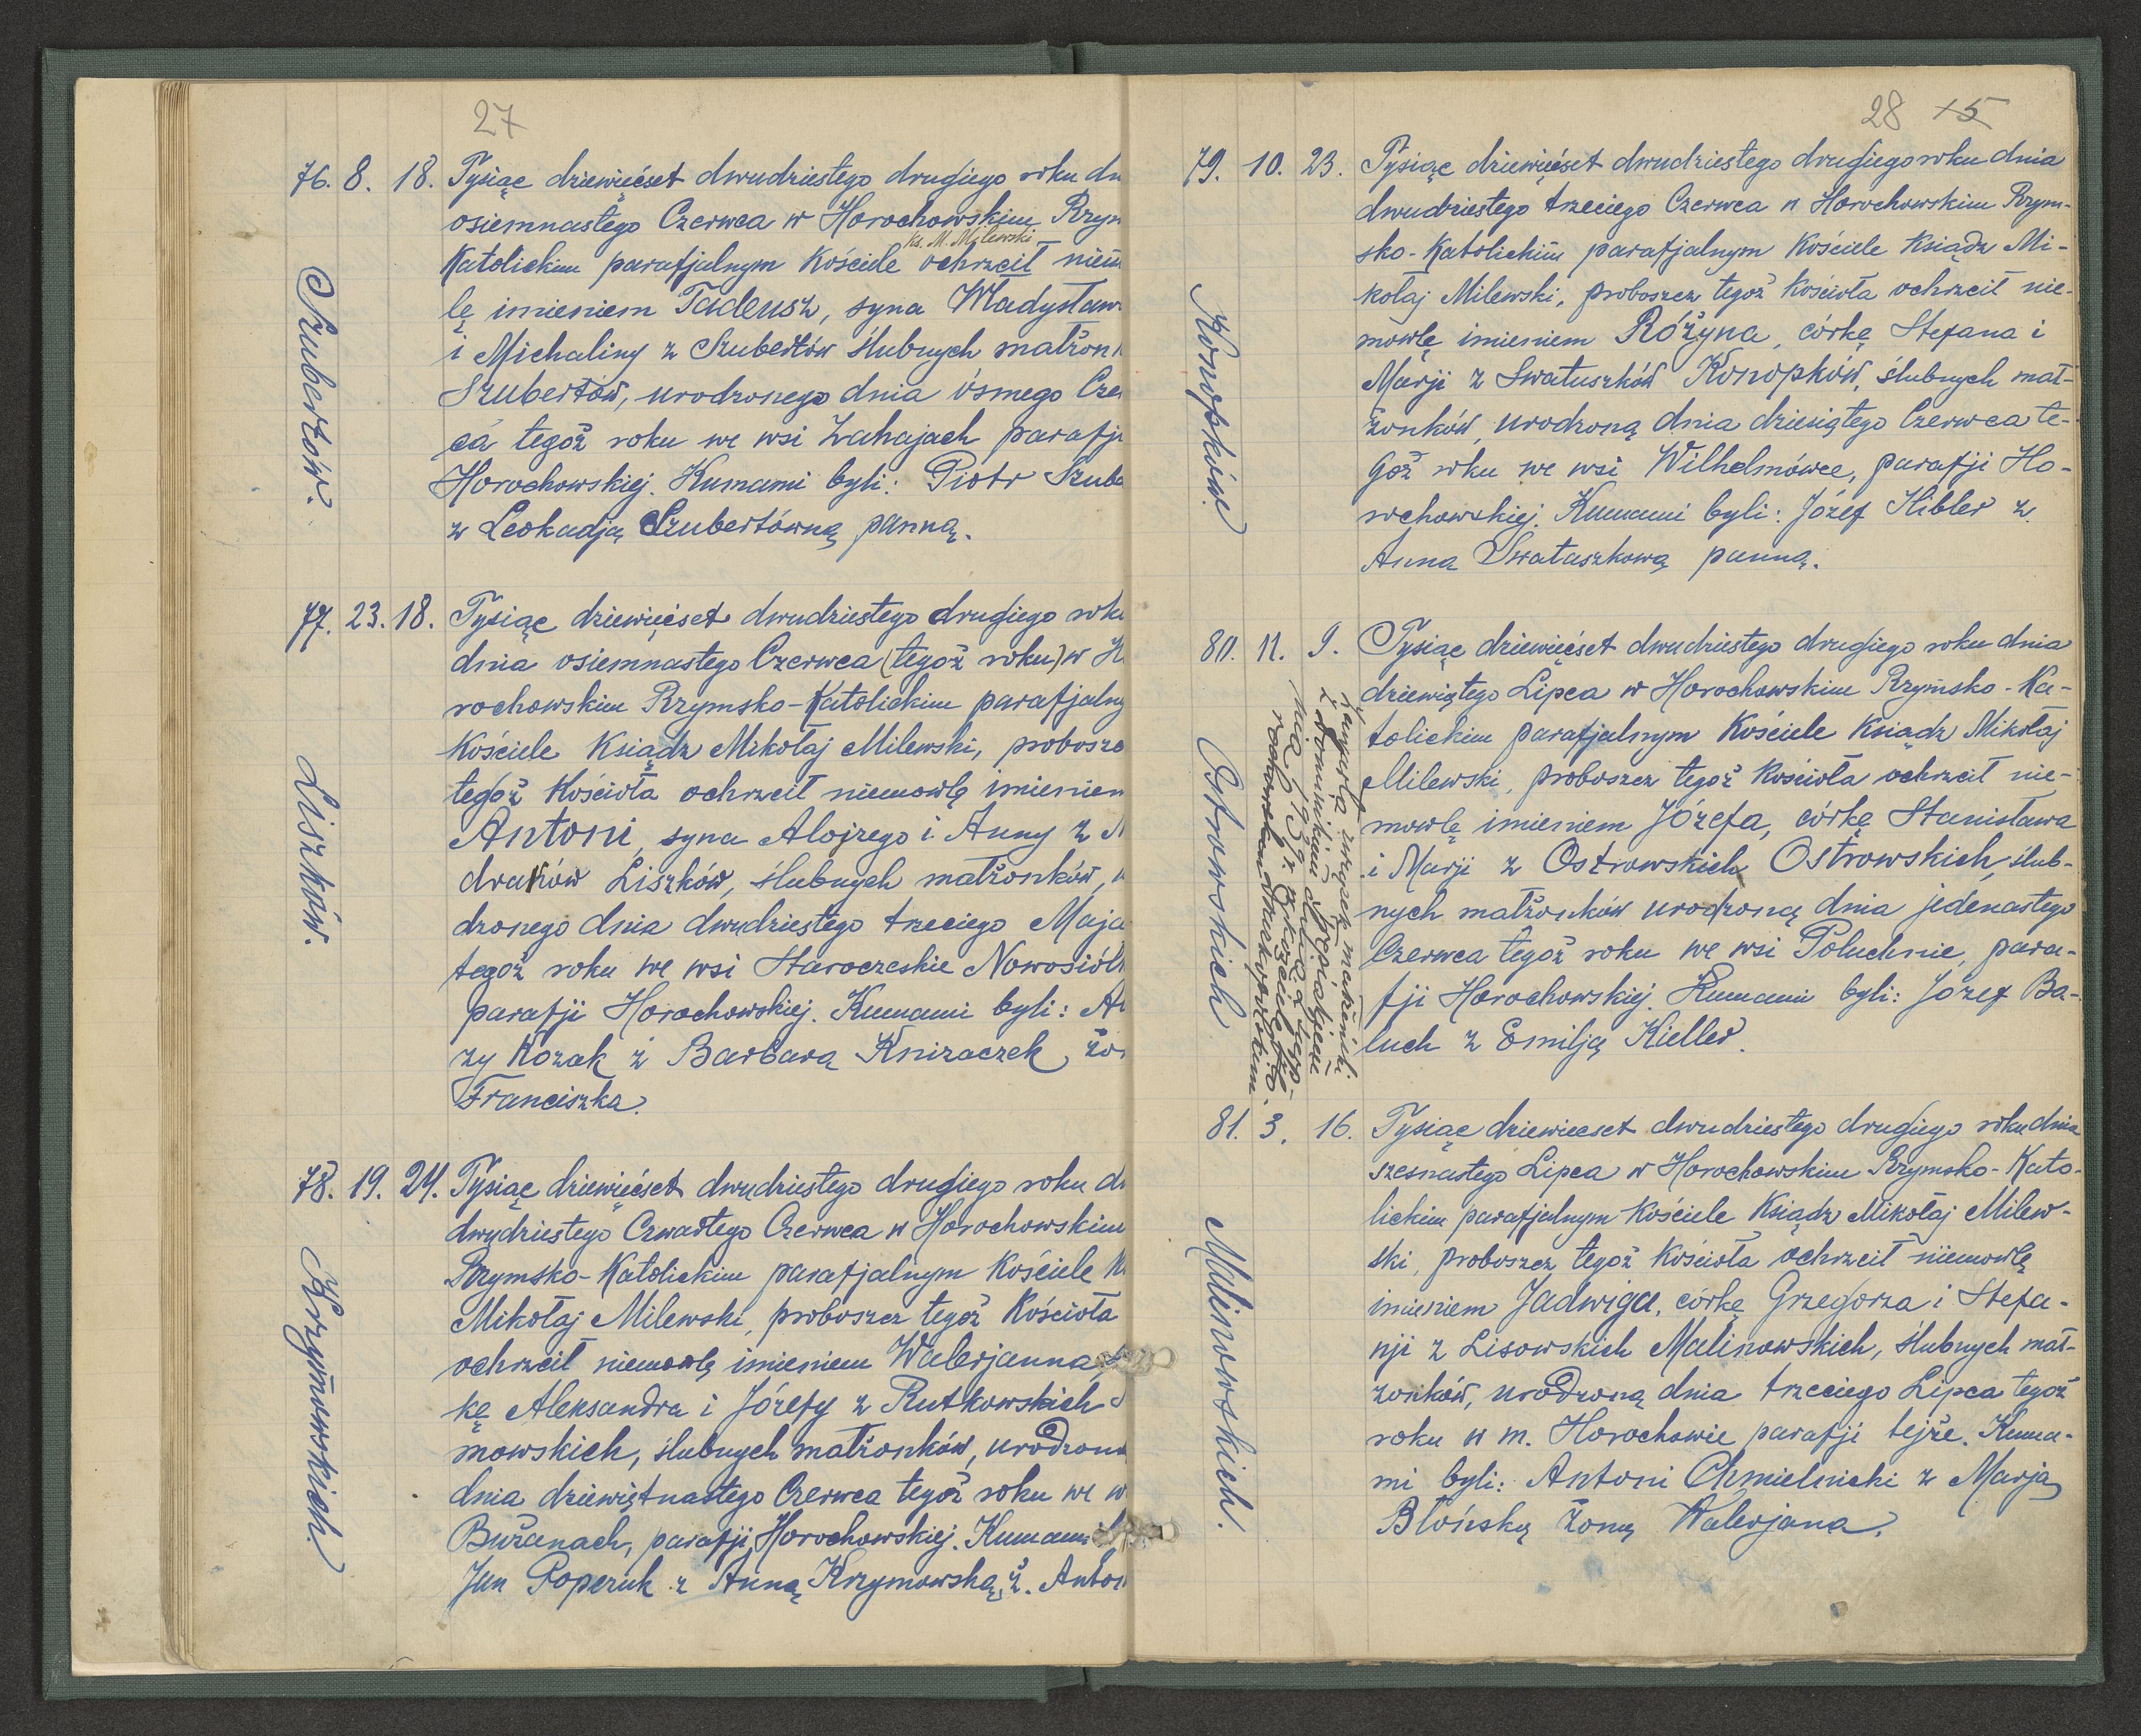 27
76. 8. 18. Tysiąc dziewięćset dwudziestego drugiego roku dn
osiemnastego Czerwca w Horochowskim Rzym
ks. M. Milewski
Katolickim parafjalnym Kościele ochrzcił niem
lę imieniem Tadeusz, syna Władysław
i Michaliny z Szubertów ślubnych małżonk
Szubertów, urodzonego dnia ósmego Cze
ca tegoż roku we wsi Zahajach parafji
Horochowskiej. Kumami byli: Piotr Szube
z Leokadją Szubertówną panną.
Szubertów.
77. 23. 18. Tysiąc dziewięćset dwudziestego drugiego roku
dnia osiemnastego Czerwca (tegoż roku) w H
rochowskim Rzymsko-Katolickim parafjalny
Kościele Ksiądz Mikołaj Milewski, proboszc
tegoż Kościoła ochrzcił niemowlę imieniem
Antoni, syna Alojzego i Anny z
draków Liszków, ślubnych małżonków, u
dzonego dnia dwudziestego trzeciego Maja
tegoż roku we wsi Staroczeskie Nowosiółk
parafji Horochowskiej. Kumami byli:
zy Kozak z Barbarą Knizaczek, żon
Franciszka.
Liszków.
78. 19. 24. Tysiąc dziewięćset dwudziestego drugiego roku dn
dwudziestego Czwartego Czerwca w Horochowskim
Rzymsko-Katolickim parafjalnym Kościele K
Mikołaj Milewski, proboszcz tegoż Kościoła
ochrzcił niemowlę imieniem Walerjanna,
kę Aleksandra i Józefy z Rutkowskich
mowskich, ślubnych małżonków, urodzoną
dnia dziewiętnastego Czerwca tegoż roku we w
Bużanach, parafji Horochowskiej. Kumami
Jan Poperuk z Anną Krzymowską, ż. Anton
Krzymowskich.
28 15
79. 10. 23. Tysiąc dziewięćset dwudziestego drugiego roku dnia
dwudziestego trzeciego Czerwca w Horochowskim Rzym-
sko-Katolickim parafjalnym Kościele Ksiądz Mi-
kołaj Milewski, proboszcz tegoż Kościoła ochrzcił nie-
mowlę imieniem Różyna, córkę Stefana i
Marji z Swatuszków Konopków, ślubnych mał-
żonków, urodzoną dnia dziesiątego Czerwca te-
goż roku we wsi Wilhelmówce, parafji Ho-
rochowskiej. Kumami byli: Józef Hibler z
Anną Swatuszkową panną.
Konopków.
80. 11. 9. Tysiąc dziewięćset dwudziestego drugiego roku dnia
dziewiątego Lipca w Horochowskim Rzymsko-Ka-
tolickim parafjalnym Kościele Ksiądz Mikołaj
Milewski, proboszcz tegoż Kościoła ochrzcił nie-
mowlę imieniem Józefa, córkę Stanisława
i Marji z Ostrowskich Ostrowskich, ślub-
nych małżonków urodzoną dnia jedenastego
Czerwca tegoż roku we wsi Poluchnie, para-
fji Horochowskiej. Kumami byli: Józef Ba-
luch z Emilją Kieller.
Ostrowskich
Zawarła związek małżeński
z Dominikiem
nia 1939 r. w kościele
81. 3. 16. Tysiąc dziewięcset dwudziestego drugiego roku dnia
szesnastego Lipca w Horochowskim Rzymsko-Kato-
lickim parafjalnym Kościele Ksiądz Mikołaj Milew-
ski, proboszcz tegoż Kościoła ochrzcił niemowlę
imieniem Jadwiga, córkę Grzegorza i Stefa-
nji z Lisowskich Malinowskich, ślubnych mał-
żonków, urodzoną dnia trzeciego Lipca tegoż
roku w m. Horochowie parafji tejże. Kuma-
mi byli: Antoni Chmielnicki z Marją
Błońską żoną Walerjana.
Malinowskich.